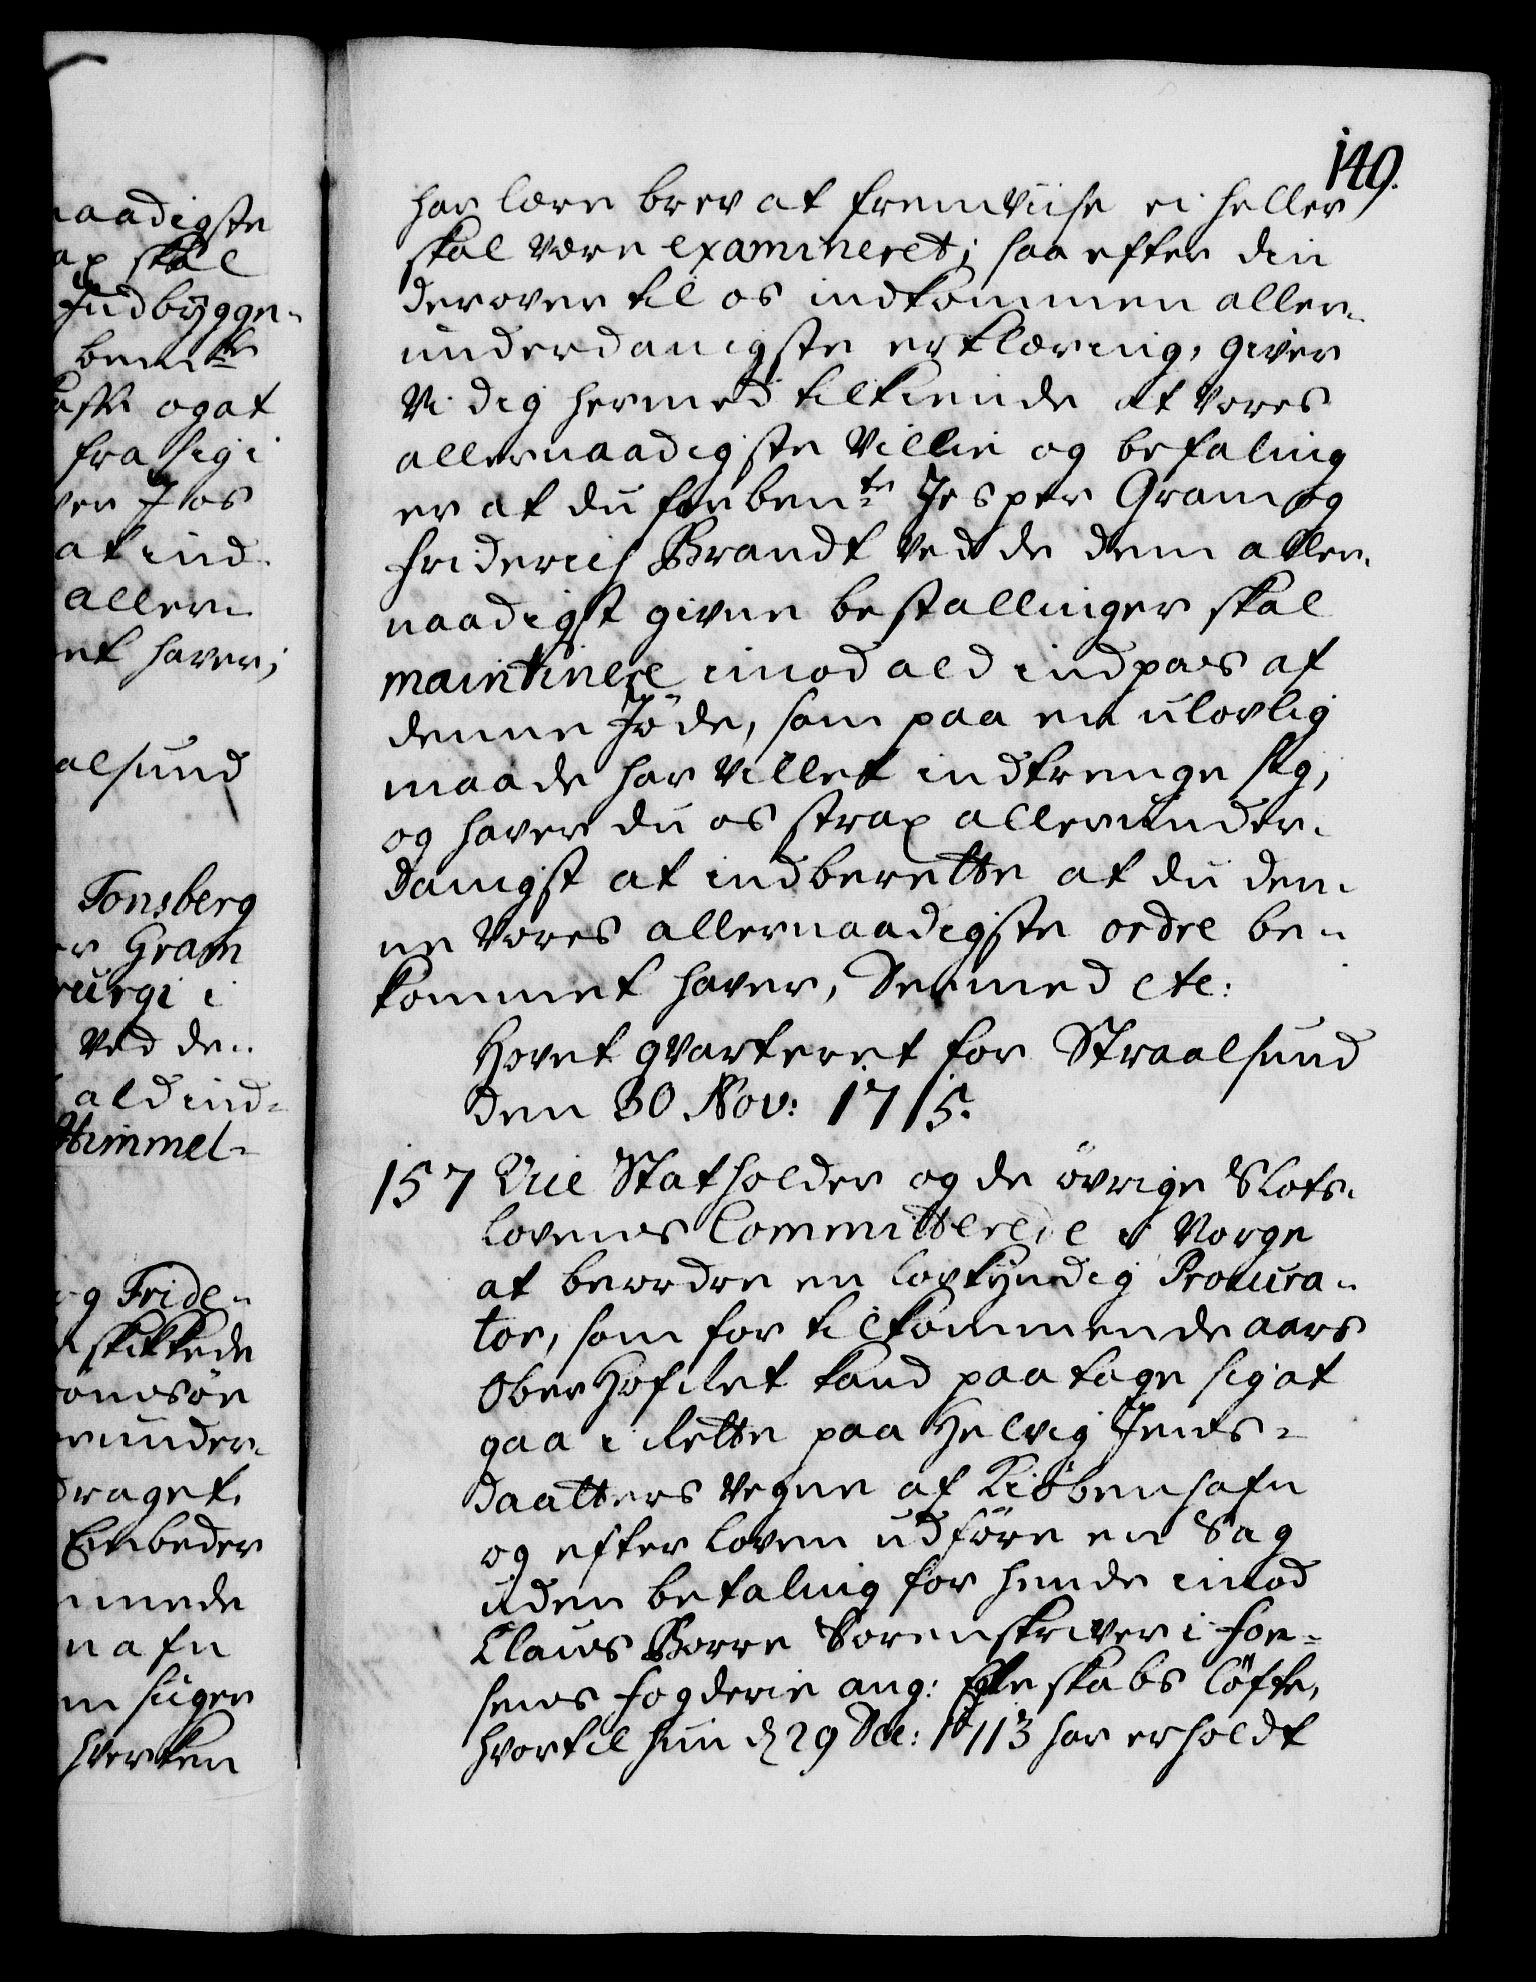 naadigste
skal
Indbygge-
bem:te
ogat
fra sig i
os
at ind-
aller-
et haver;
alsund
Tonsberg
Gram
rurgi i
ved de-
ald ind-
Himmel-
og Fride-
skikkede
under-
draget,
Embeder
mede
nafn
suger
hverken
149.
har lære brev at fremviise ei heller
skal være examineret; saa efter din
derover til os indkommen aller-
underdanigste erklæring, giver
Vi dig hermed tilkiende at vores
allernaadigste Villie og befaling
er at du forben:te Jesper Gram og
Friderich Brandt ved de dem aller-
naadigst givne bestallinger skal
maintinere imod ald indpas af
denne Jöde, som paa en ulovlig
maade har villet indtrenge sig,
og haver du os strax allerunder-
danigst at indberette at du den-
ne Vores allernaadigste ordre be-
kommet haver, Dermed etc:
Hovet qvarteret for Straalsund
den 30 Nov: 1715.
157 Vice Statholder og de övrige Slots-
lovens Committerede i Norge
at beordre en lovkyndig Procura-
tor, som for tilkommende aars
Ober Hofret kand paatage sig at
gaa i Rette paa Helvig Jens-
daatters vegne af Kiöbenhafn
og efter loven udföre en Sag
uden betaling for hende imod
Claus Borre Sorenskriver i Foe-
sens fogderie ang: Egteskabs löfte,
hvortil hun d 29 Dec: 1713 har erholdt